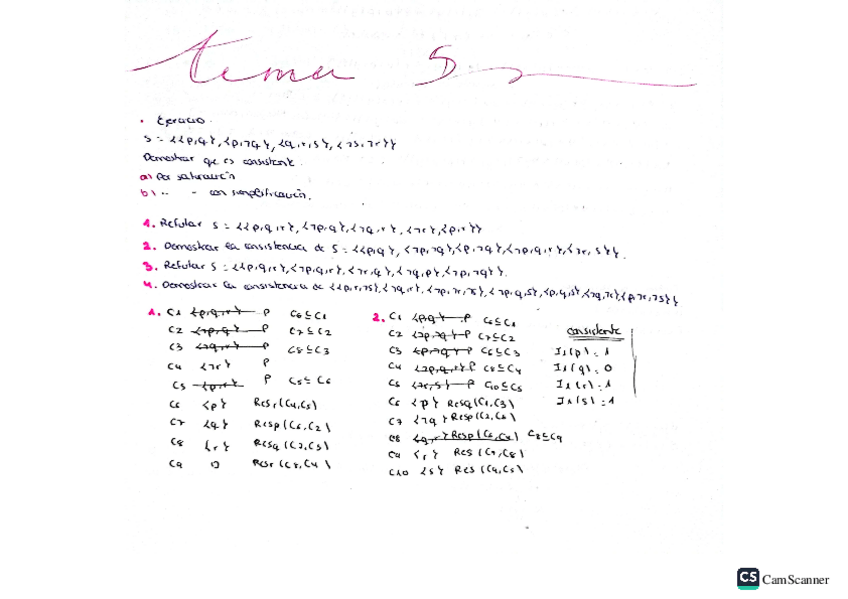 tema 5
• Ejercicio.
S = {{p,q}, {p,¬q}, {q,r,s}, {¬s,¬r}}
Demostrar que es consistente.
a) Por saturación
b) " - con simplificación.
1. Refutar S = {{p,q,r}, {¬p,q}, {¬q,r}, {¬r}, {p,r}}
2. Demostrar la consistencia de S = {{p,q}, {¬p,¬q}, {p,¬q}, {¬p,q,r}, {¬r,s}}.
3. Refutar S = {{p,q,r}, {¬p,q,r}, {¬r,q}, {¬q,p}, {¬p,¬q}}.
4. Demostrar la consistencia de
1. C1 {p,q,r} P C6 ⊆ C1
C2 {¬p,q} P C7 ⊆ C2
C3 {¬q,r} P C8 ⊆ C3
C4 {¬r} P
C5 {p,r} P C5 ⊆ C6
C6 {p} Res r (C4,C5)
C7 {q} Res p (C6,C2)
C8 {r} Res q (C7,C3)
C9 □ Res r (C8,C4)
2. C1 {p,q} P C6 ⊆ C1
C2 {¬p,¬q} P C7 ⊆ C2
C3 {p,¬q} P C6 ⊆ C3
C4 {¬p,q,r} P C8 ⊆ C4
C5 {¬r,s} P C10 ⊆ C5
C6 {p} Res q (C1,C3)
C7 {¬q} Res p (C2,C6)
C8 {q,r} Res p (C6,C4) C8 ⊆ C9
C9 {r} Res (C7,C8)
C10 {s} Res (C9,C5)
consistente
I1(p) = 1
I1(q) = 0
I1(r) = 1
I1(s) = 1
CS CamScanner